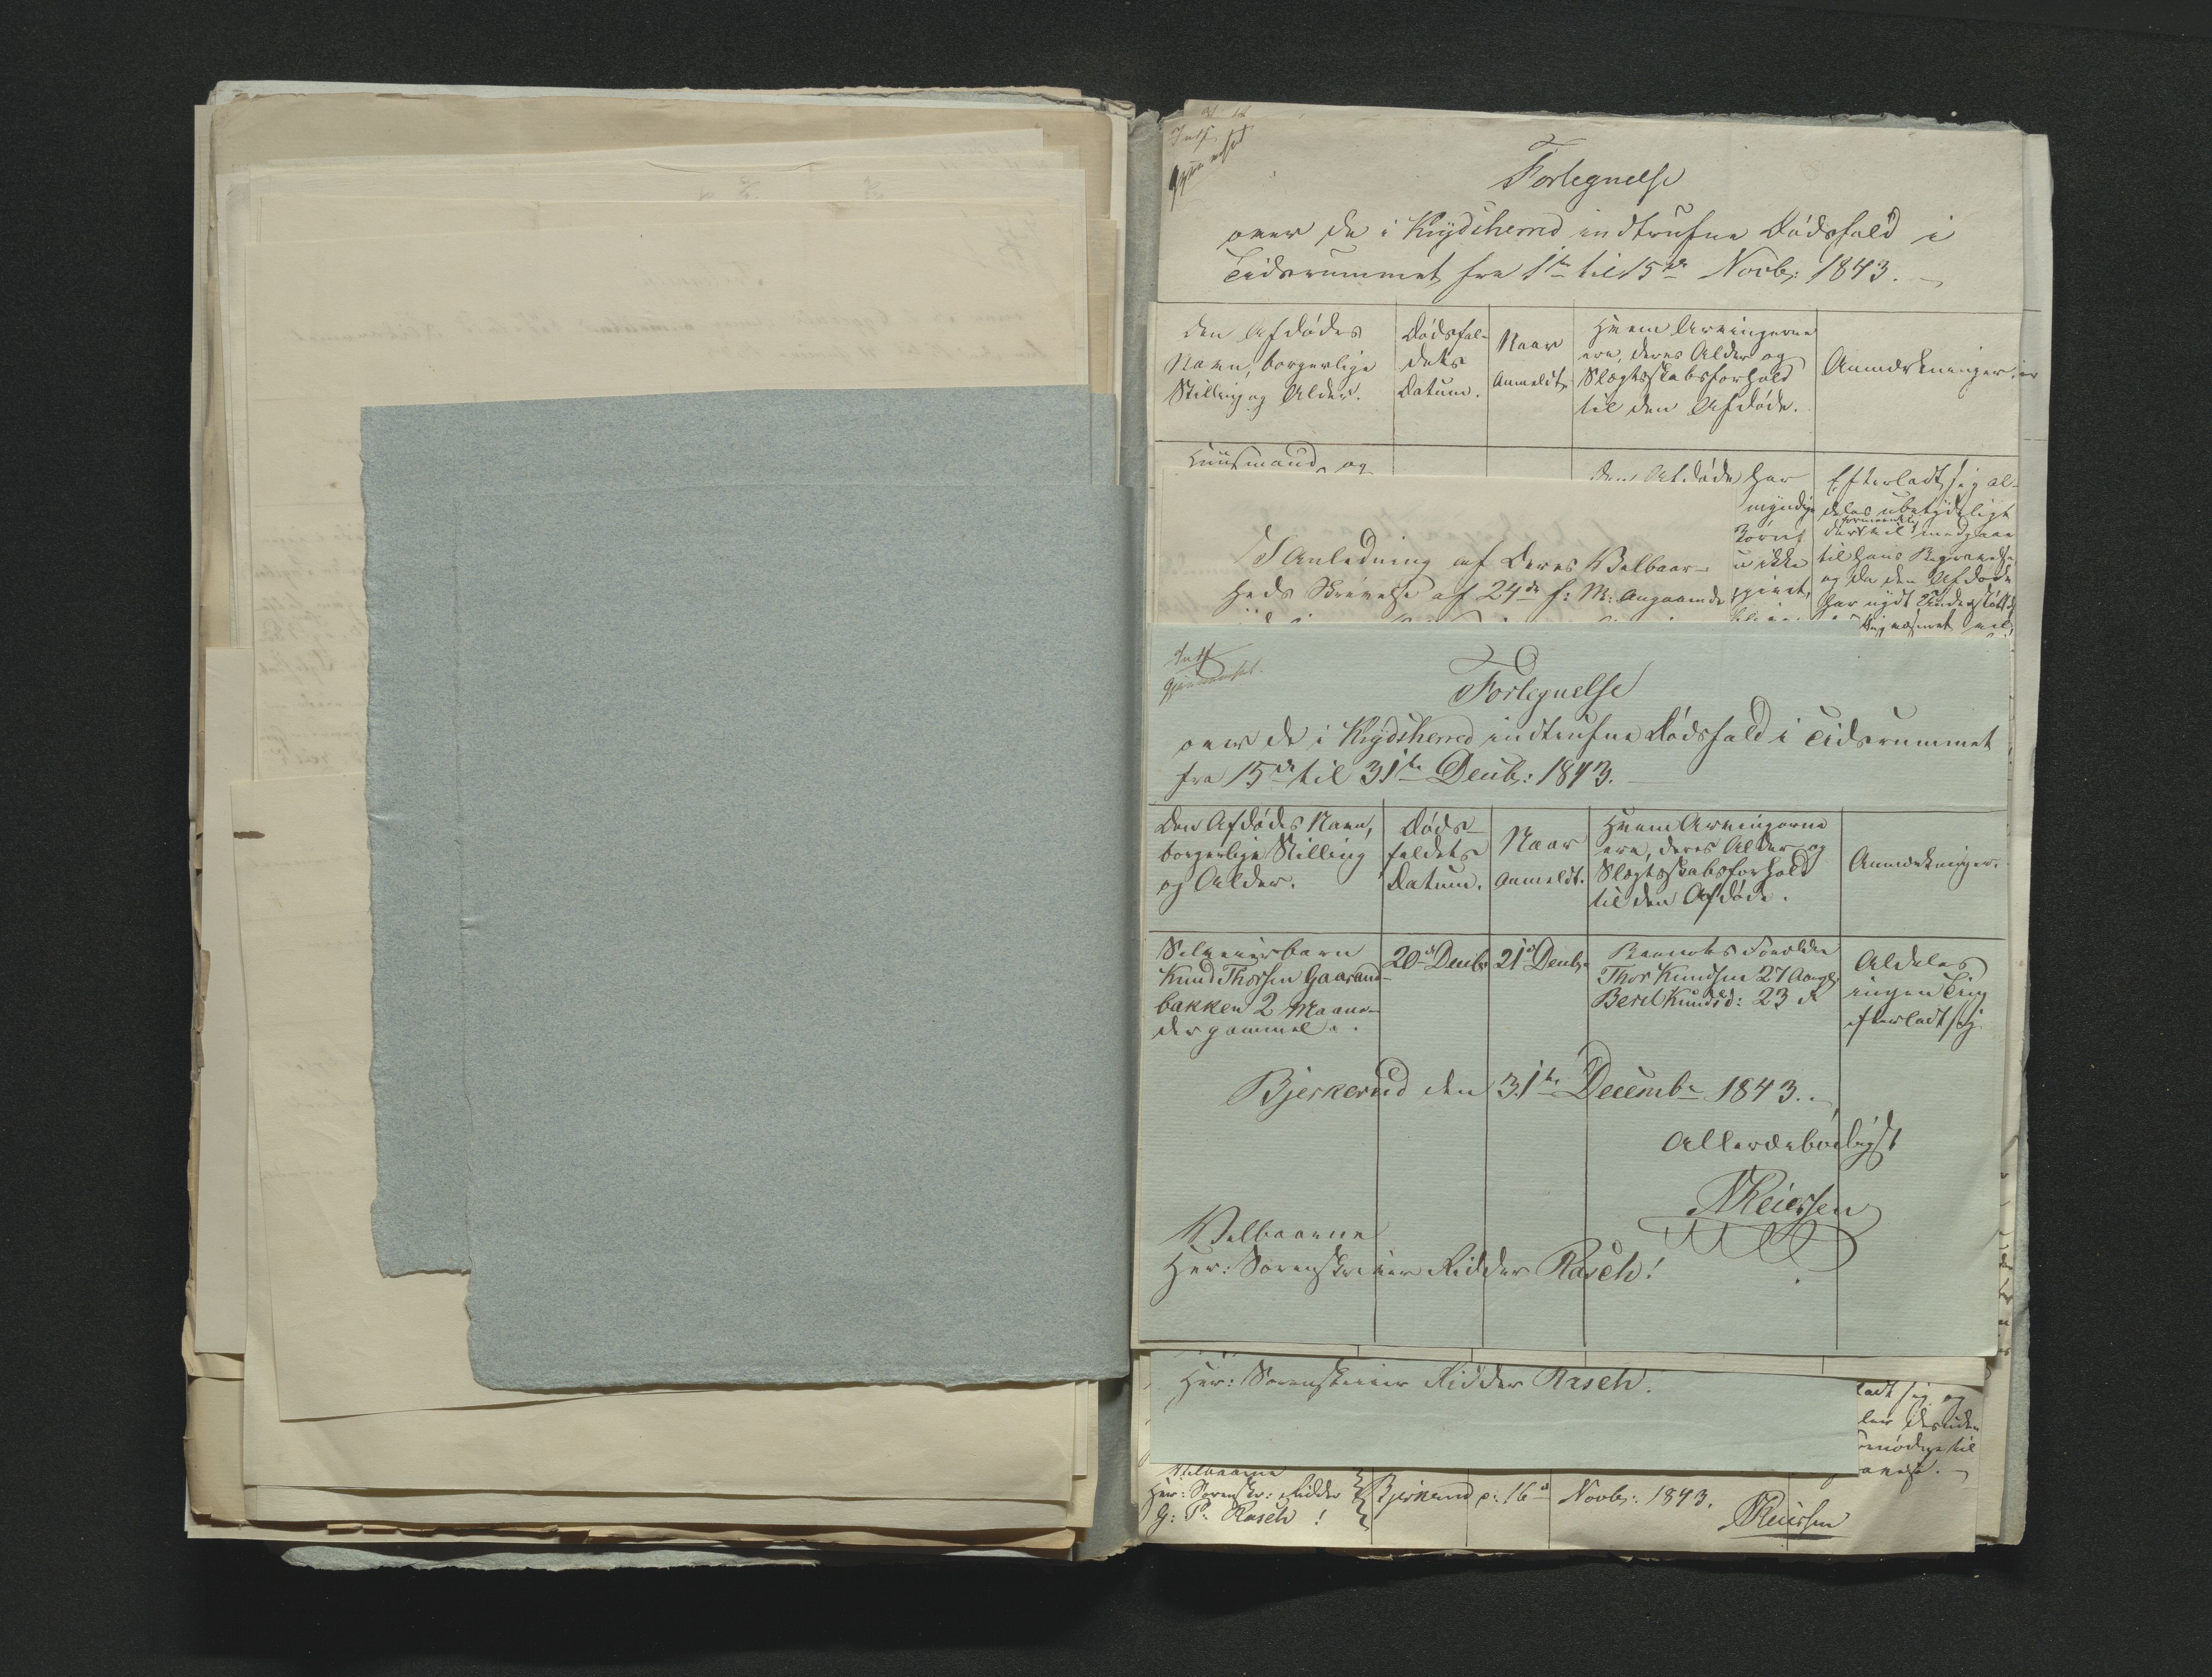 Intf
Gjennemset
Fortegnelse
over de i Krydsherred indtrufne Dødsfald i
Tidsrummet fra 1ste til 15de Novb: 1843.
Den Afdødes
Navn, borgerlige
Stilling og Alder.
Dødsfal-
dets
Datum.
Naar
Anmeldt.
Hvem Arvingerne
ere, deres Alder og
Slægtsskabsforhold
til den Afdøde.
Anmærkninger.
Huusmand og
Den Afdøde har
myndige
Efterladt sig al-
deles ubetydeligt
til hans Begravelse
og da den Afdøde
har nydt Understøtt
I Anledning af Deres Velbaaren-
heds Skrivelse af 24de f: M: angaaende
Intf
Gjennemset.
Fortegnelse
over de i Krydsherred indtrufne Dødsfald i Tidsrummet
fra 15de til 31te Decbr: 1843.
Den Afdødes Navn,
borgerlige Stilling
og Alder.
Døds-
faldets
Datum.
Naar
Anmeldt.
Hvem Arvingerne
ere, deres Alder og
Slægtsskabsforhold
til den Afdøde.
Anmærkninger.
Selveierbarn
Knud Thorsen Gaarand-
bakken 2 Maane-
der gammel.
20de Decbr
21de Decbr
Barnets Forældre
Thor Knudsen 27 Aar gl.
Berit Knudsd: 23 d
Aldeles
ingen Ting
efterladt sig.
Bjerkerud den 31te Decembr 1843.
Allerærbødigst
NReiersen
Velbaarne
Herr: Sorenskriver Ridder Rasch!
Herr: Sorenskriver Ridder Rasch.
ladt sig og
Velbaarne
Herr: Sorenskr: Ridder
G: P: Rasch!
Bjerkerud d: 16de Novbr: 1843.
NReiersen